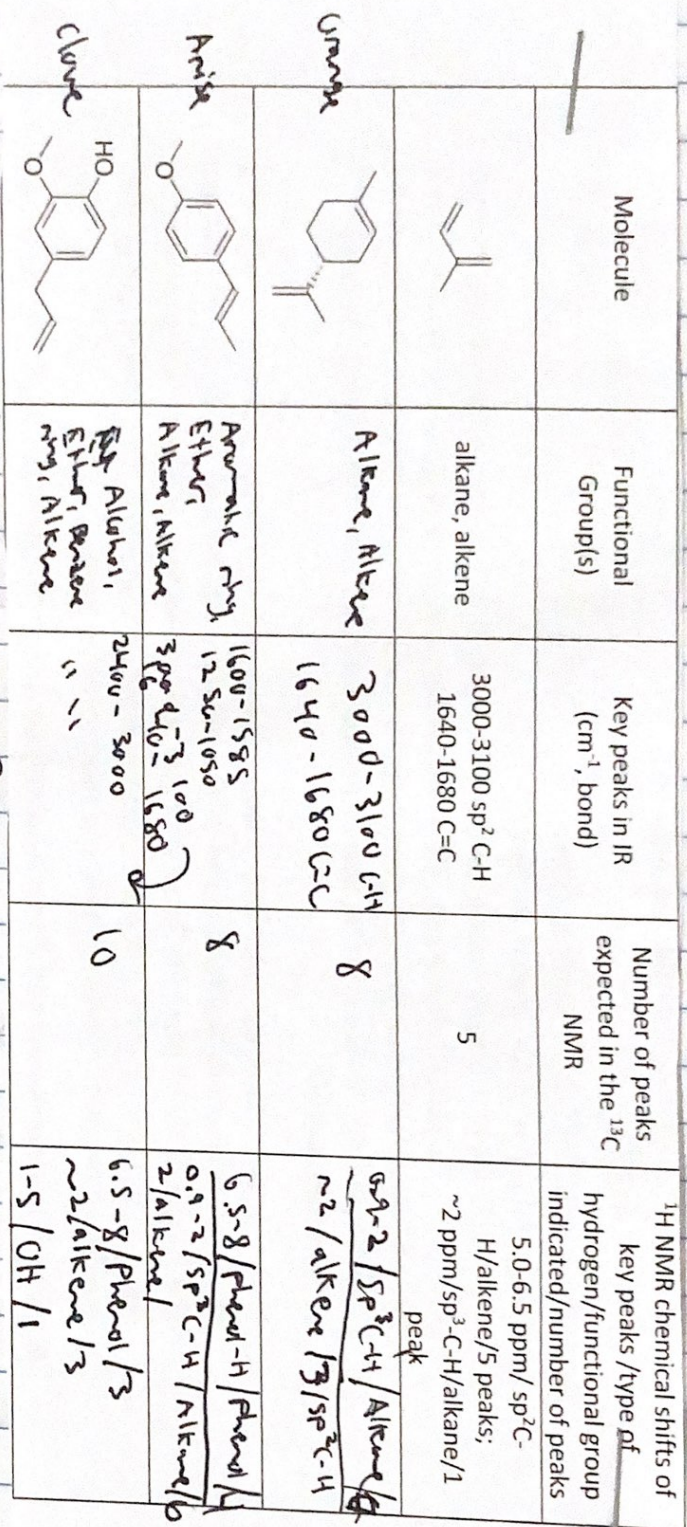 Molecule
Functional
Group(s)
Key peaks in IR
(cm⁻¹, bond)
Number of peaks
expected in the ¹³C
NMR
¹H NMR chemical shifts of
key peaks /type of
hydrogen/functional group
indicated/number of peaks
alkane, alkene
3000-3100 sp² C-H
1640-1680 C=C
5
5.0-6.5 ppm/ sp²C-
H/alkene/5 peaks;
~2 ppm/sp³-C-H/alkane/1
peak
Orange
Alkane, Alkene
3000-3100 C-H
1640-1680 C=C
8
0.9-2/sp³C-H/Alkane/
~2/alkene/3/sp²C-H
Anise
O
Aromatic ring,
Ether,
Alkane, Alkene
1600-1585
1250-1050
1680
8
6.5-8/phenol-H/phenol/4
0.9-2/sp³C-H/Alkane/6
2/alkene/
Clove
HO
O
Alcohol,
Ether, Benzene
ring, Alkene
2400-3000
" "
10
6.5-8/Phenol/3
~2/alkene/3
1-5/OH/1